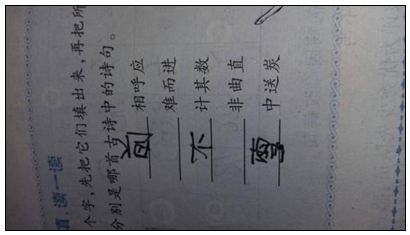 填，读一读
个字，先把它们填出来，再把所
分别是哪首古诗中的诗句。
前相呼应
难而进
不计其数
非曲直
雪中送炭